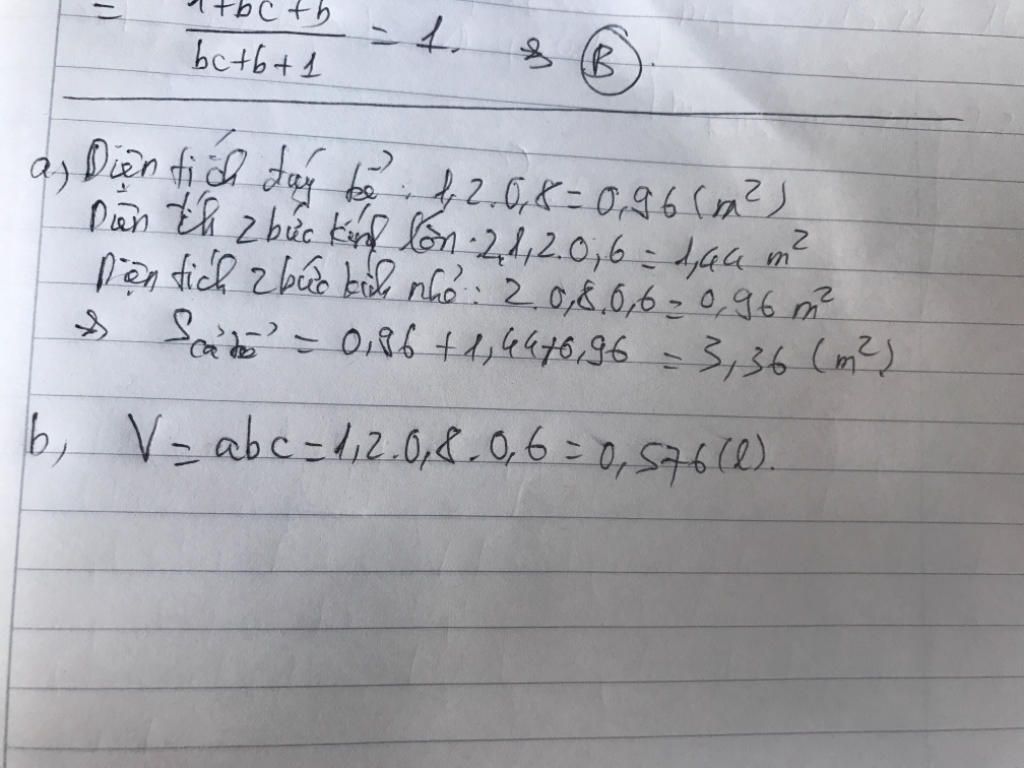 = 1+bc+b / bc+b+1 = 1. => B.
a, Diện tích đáy bể : 1,2.0,8 = 0,96 (m²)
Diện tích 2 bức kính lớn : 2.1,2.0,6 = 1,44 m²
Diện tích 2 bức kính nhỏ : 2.0,8.0,6 = 0,96 m²
=> S cả bể = 0,96 + 1,44 + 0,96 = 3,36 (m²)
b, V = abc = 1,2.0,8.0,6 = 0,576 (l).